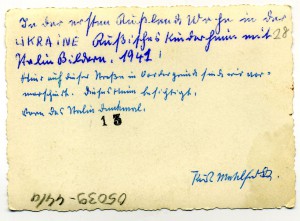 In der ersten Rußlands Woche in der
UKRAINE Rußisches Kinderheim mit
Stalin Bildern. 1941!
28
Hier auf dieser Straßen in Vordergrund sind wir vor-
marschirt. Dieses Heim besichtigt.
Vorn das Stalin Denkmal.
13
Kurt
05039-44/a